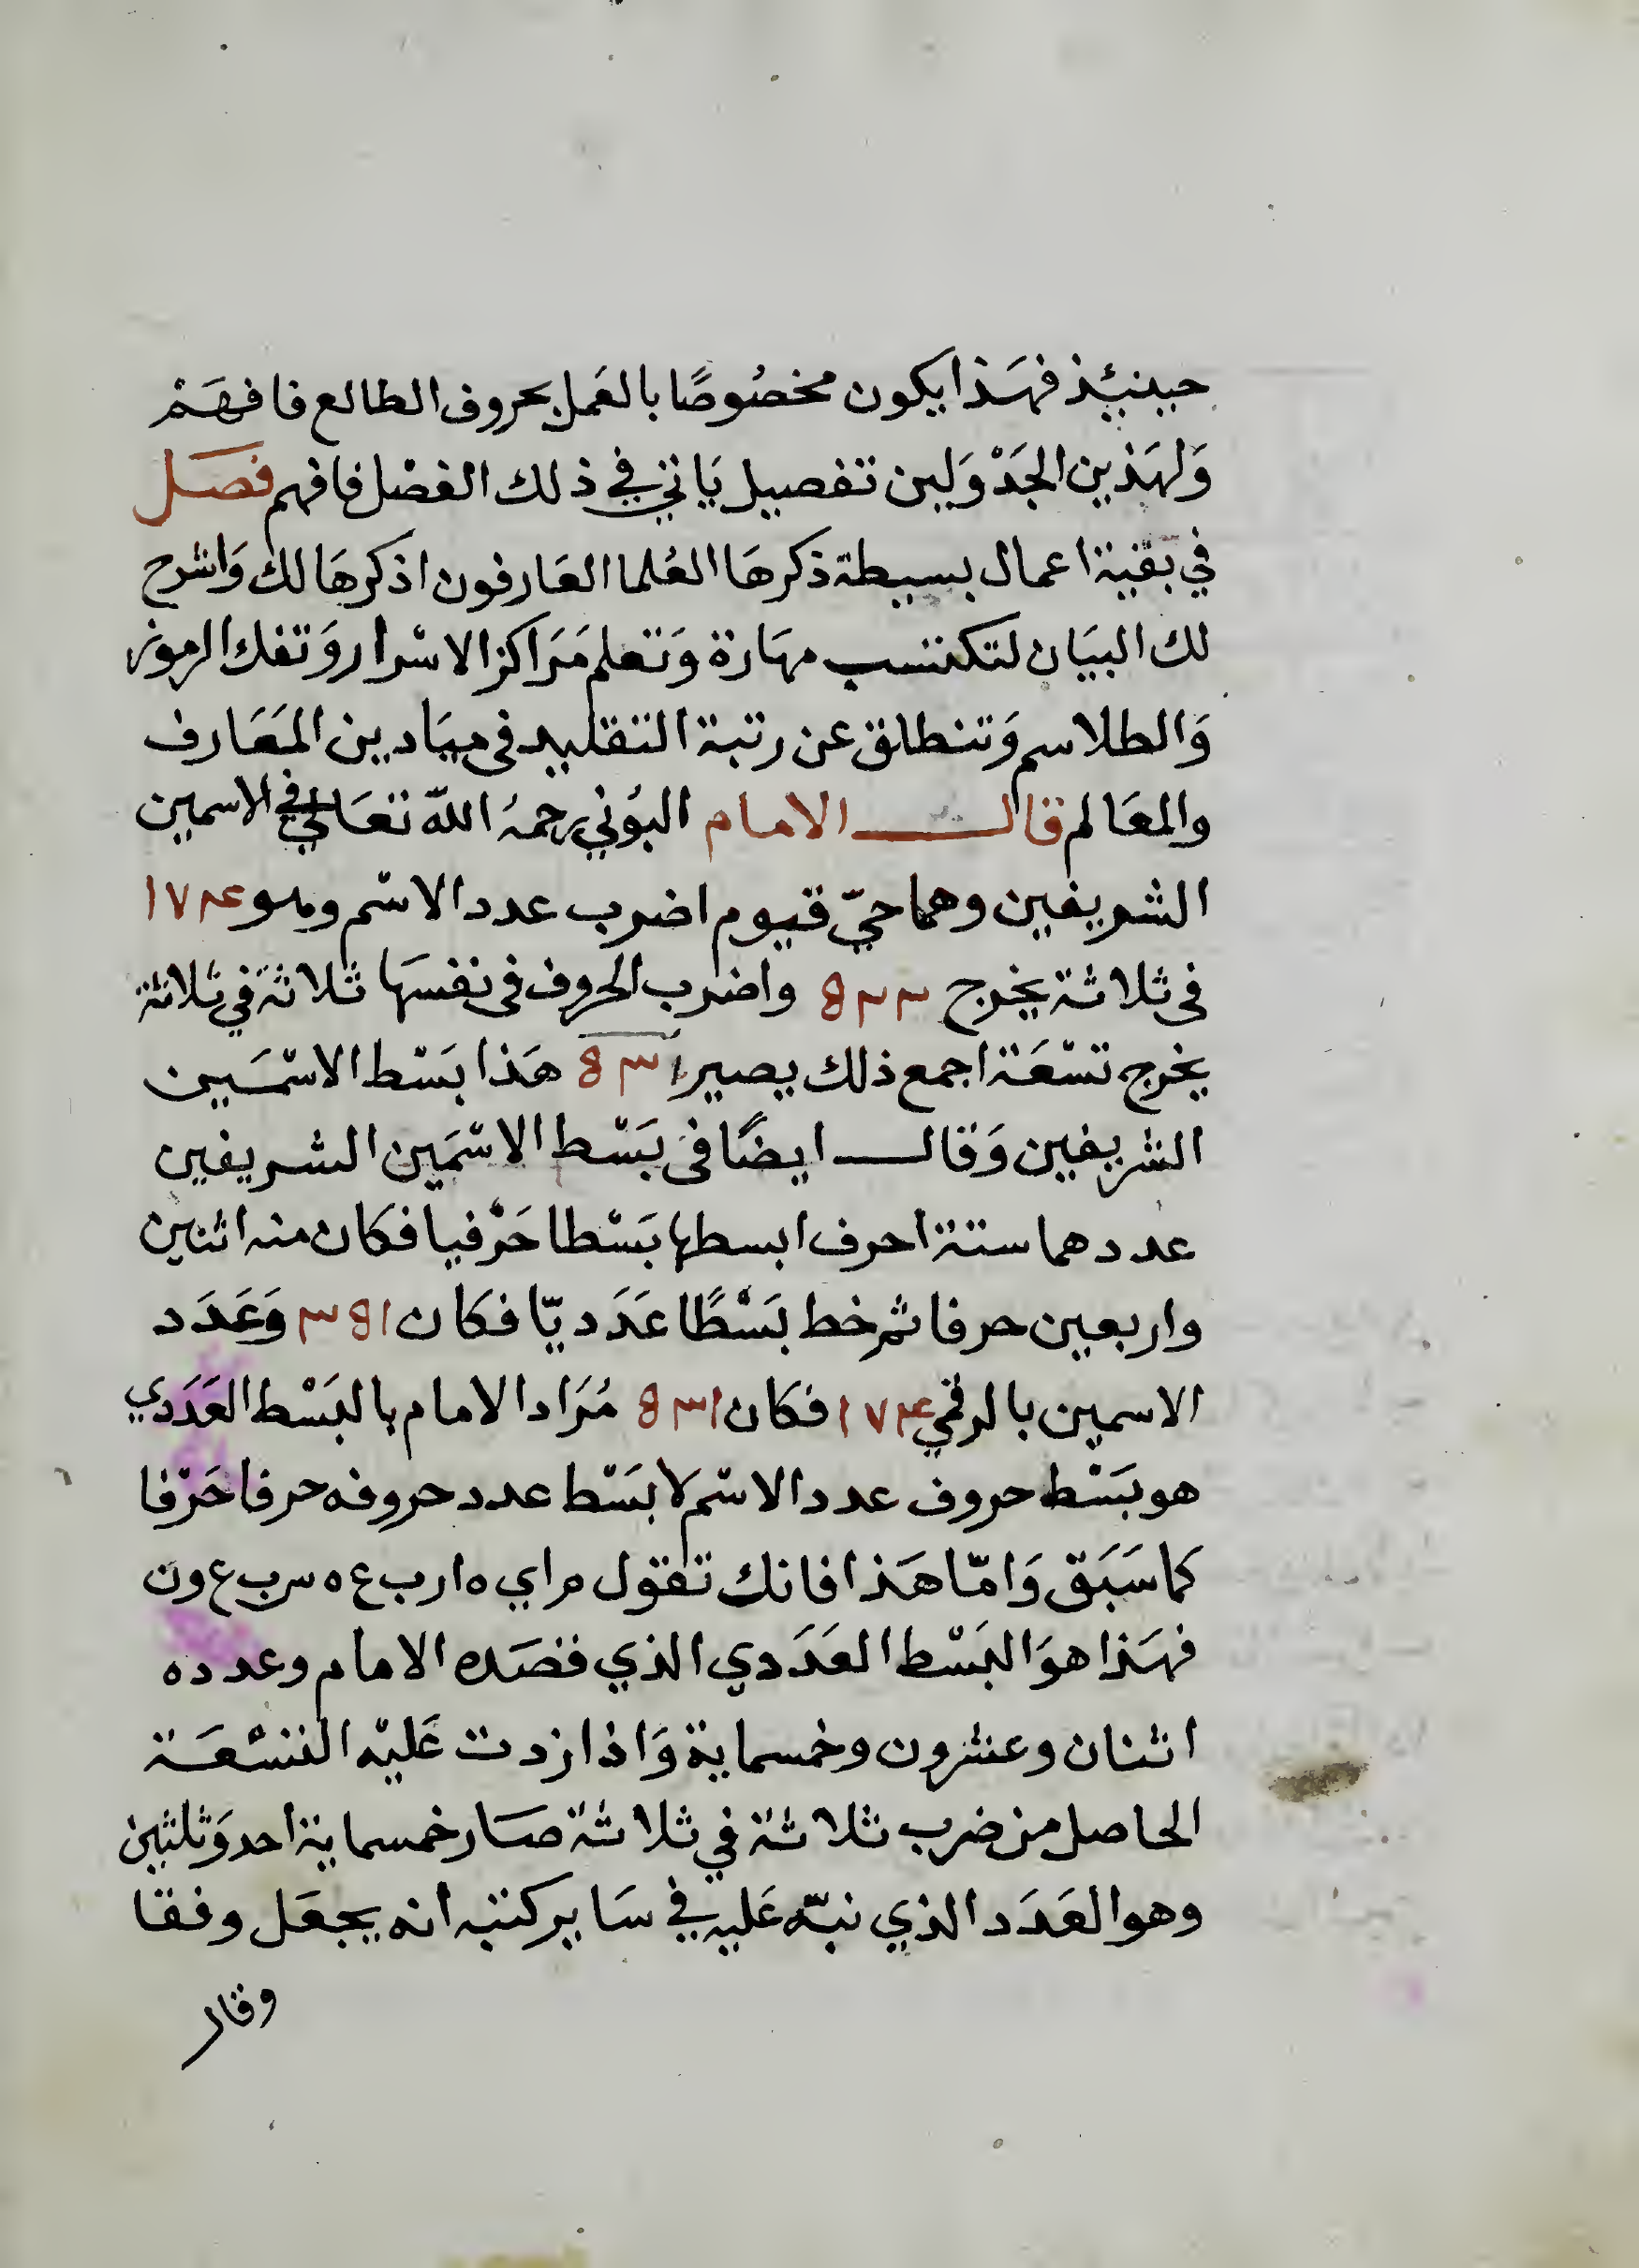 حينيئذ فهَذا يكون مخصُوصًا بالعَمل بحروف الطالع فافهَمْ
وَلهَذين الجَدْوَلين تفصيل يَاتي في ذلك الفصْل فافهم فصَل
في بقية اعمال بسيطة ذكرهَا العُلما العَارفون اذكرهَا لك وَاشرح
لك البيَان لتكتسب مهَارة وَتعلم مَرَاكز الاسْرار وَتفك الرموز
وَالطلاسم وَتنطلق عن رتبة التقليد فى ميَادين المَعَارف
والمعَالم قال الامام البُوني رحمهُ اللّه تعَالي في الاسمين
الشريفين وهما حيّ قيوم اضرب عدد الاسْم وهو ١٧٤
فى ثلاثة يخرج ٥٢٢ واضرب الحروف فى نفسهَا ثلاثة في ثلاثة
يخرج تسْعَة اجمع ذلك يصير ٥٣١ هَذا بَسْط الاسْمَين
الشريفين وَقال ايضًا فى بَسْط الاسْمَين الشريفين
عددهما ستة احرف ابسطها بَسْطا حَرْفيا فكان منه اثنين
واربعين حرفا ثم خط بَسْطًا عَدَديّا فكان ٣٥١ وَعَدَد
الاسمين بالرقمي ١٧٤ فكان ٥٣١ مُرَاد الامام بالبَسْط العَدَدي
هو بَسْط حروف عدد الاسْم لا بَسْط عدد حروفه حرفا حَرْفا
كما سَبَق وَامّا هَذا فانك تقول م ا ي ه ا ر ب ع ه س ب ع و ن
فهَذا هوَ البَسْط العَدَدي الذي قصَده الامام وعدده
اثنان وعشرون وخمسماية وَاذا زدت عَليْه التسْعَة
الحاصل من ضرب ثلاثة في ثلاثة صَار خمسماية احد وَثلثين
وهو العَدَد الذي نبّه عَليه في سَاير كتبه انه يجعَل وفقا
وقال